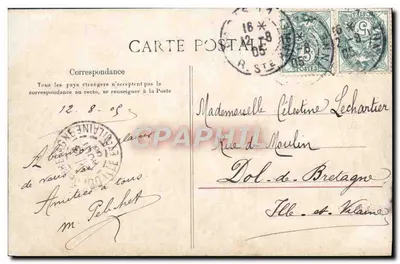 CARTE POSTALE
16 *
12 - 8
05
R. STE ANNE
Correspondance
Tous les pays étrangers n'acceptent pas la
correspondance au recto, se renseigner à la Poste
12. 8. 05
A bientôt
de vous voir
Amitiés à tous
M. Pelichet
ILLE ET VILAINE
CPAPHIL
Mademoiselle Célestine Lechartier
Rue du Moulin
Dol-de-Bretagne
Ille-et-Vilaine